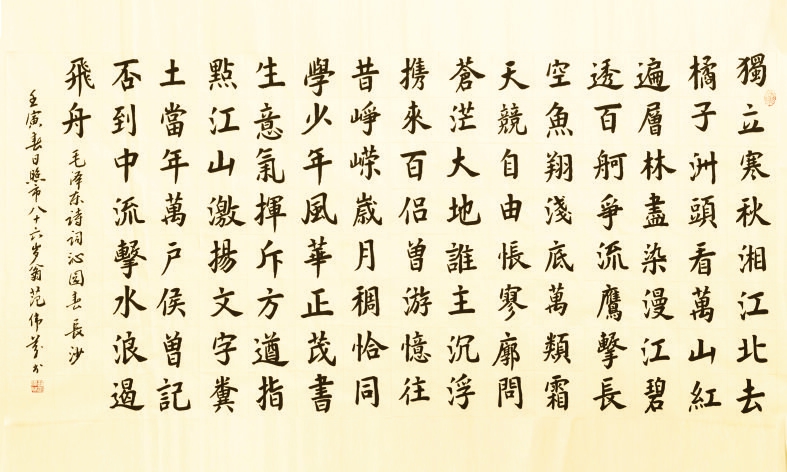 獨立寒秋湘江北去
橘子洲頭看萬山紅
遍層林盡染漫江碧
透百舸爭流鷹擊長
空魚翔淺底萬類霜
天競自由悵寥廓問
蒼茫大地誰主沉浮
携來百侣曾游憶往
昔崢嶸歲月稠恰同
學少年風華正茂書
生意氣揮斥方遒指
點江山激揚文字糞
土當年萬户侯曾記
否到中流擊水浪遏
飛舟
毛泽东詩词沁园春長沙
壬寅春日照市八十六岁翁范伟书